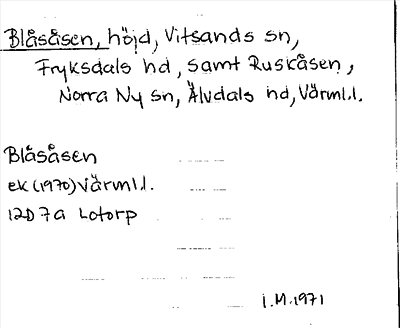 Blåsåsen, höjd, Vitsands sn,
Fryksdals hd, samt Ruskåsen,
Norra Ny sn, Älvdals hd, Värml.l.
Blåsåsen
ek (1970) Värml.l.
12D 7a Lotorp
i.M. 1971